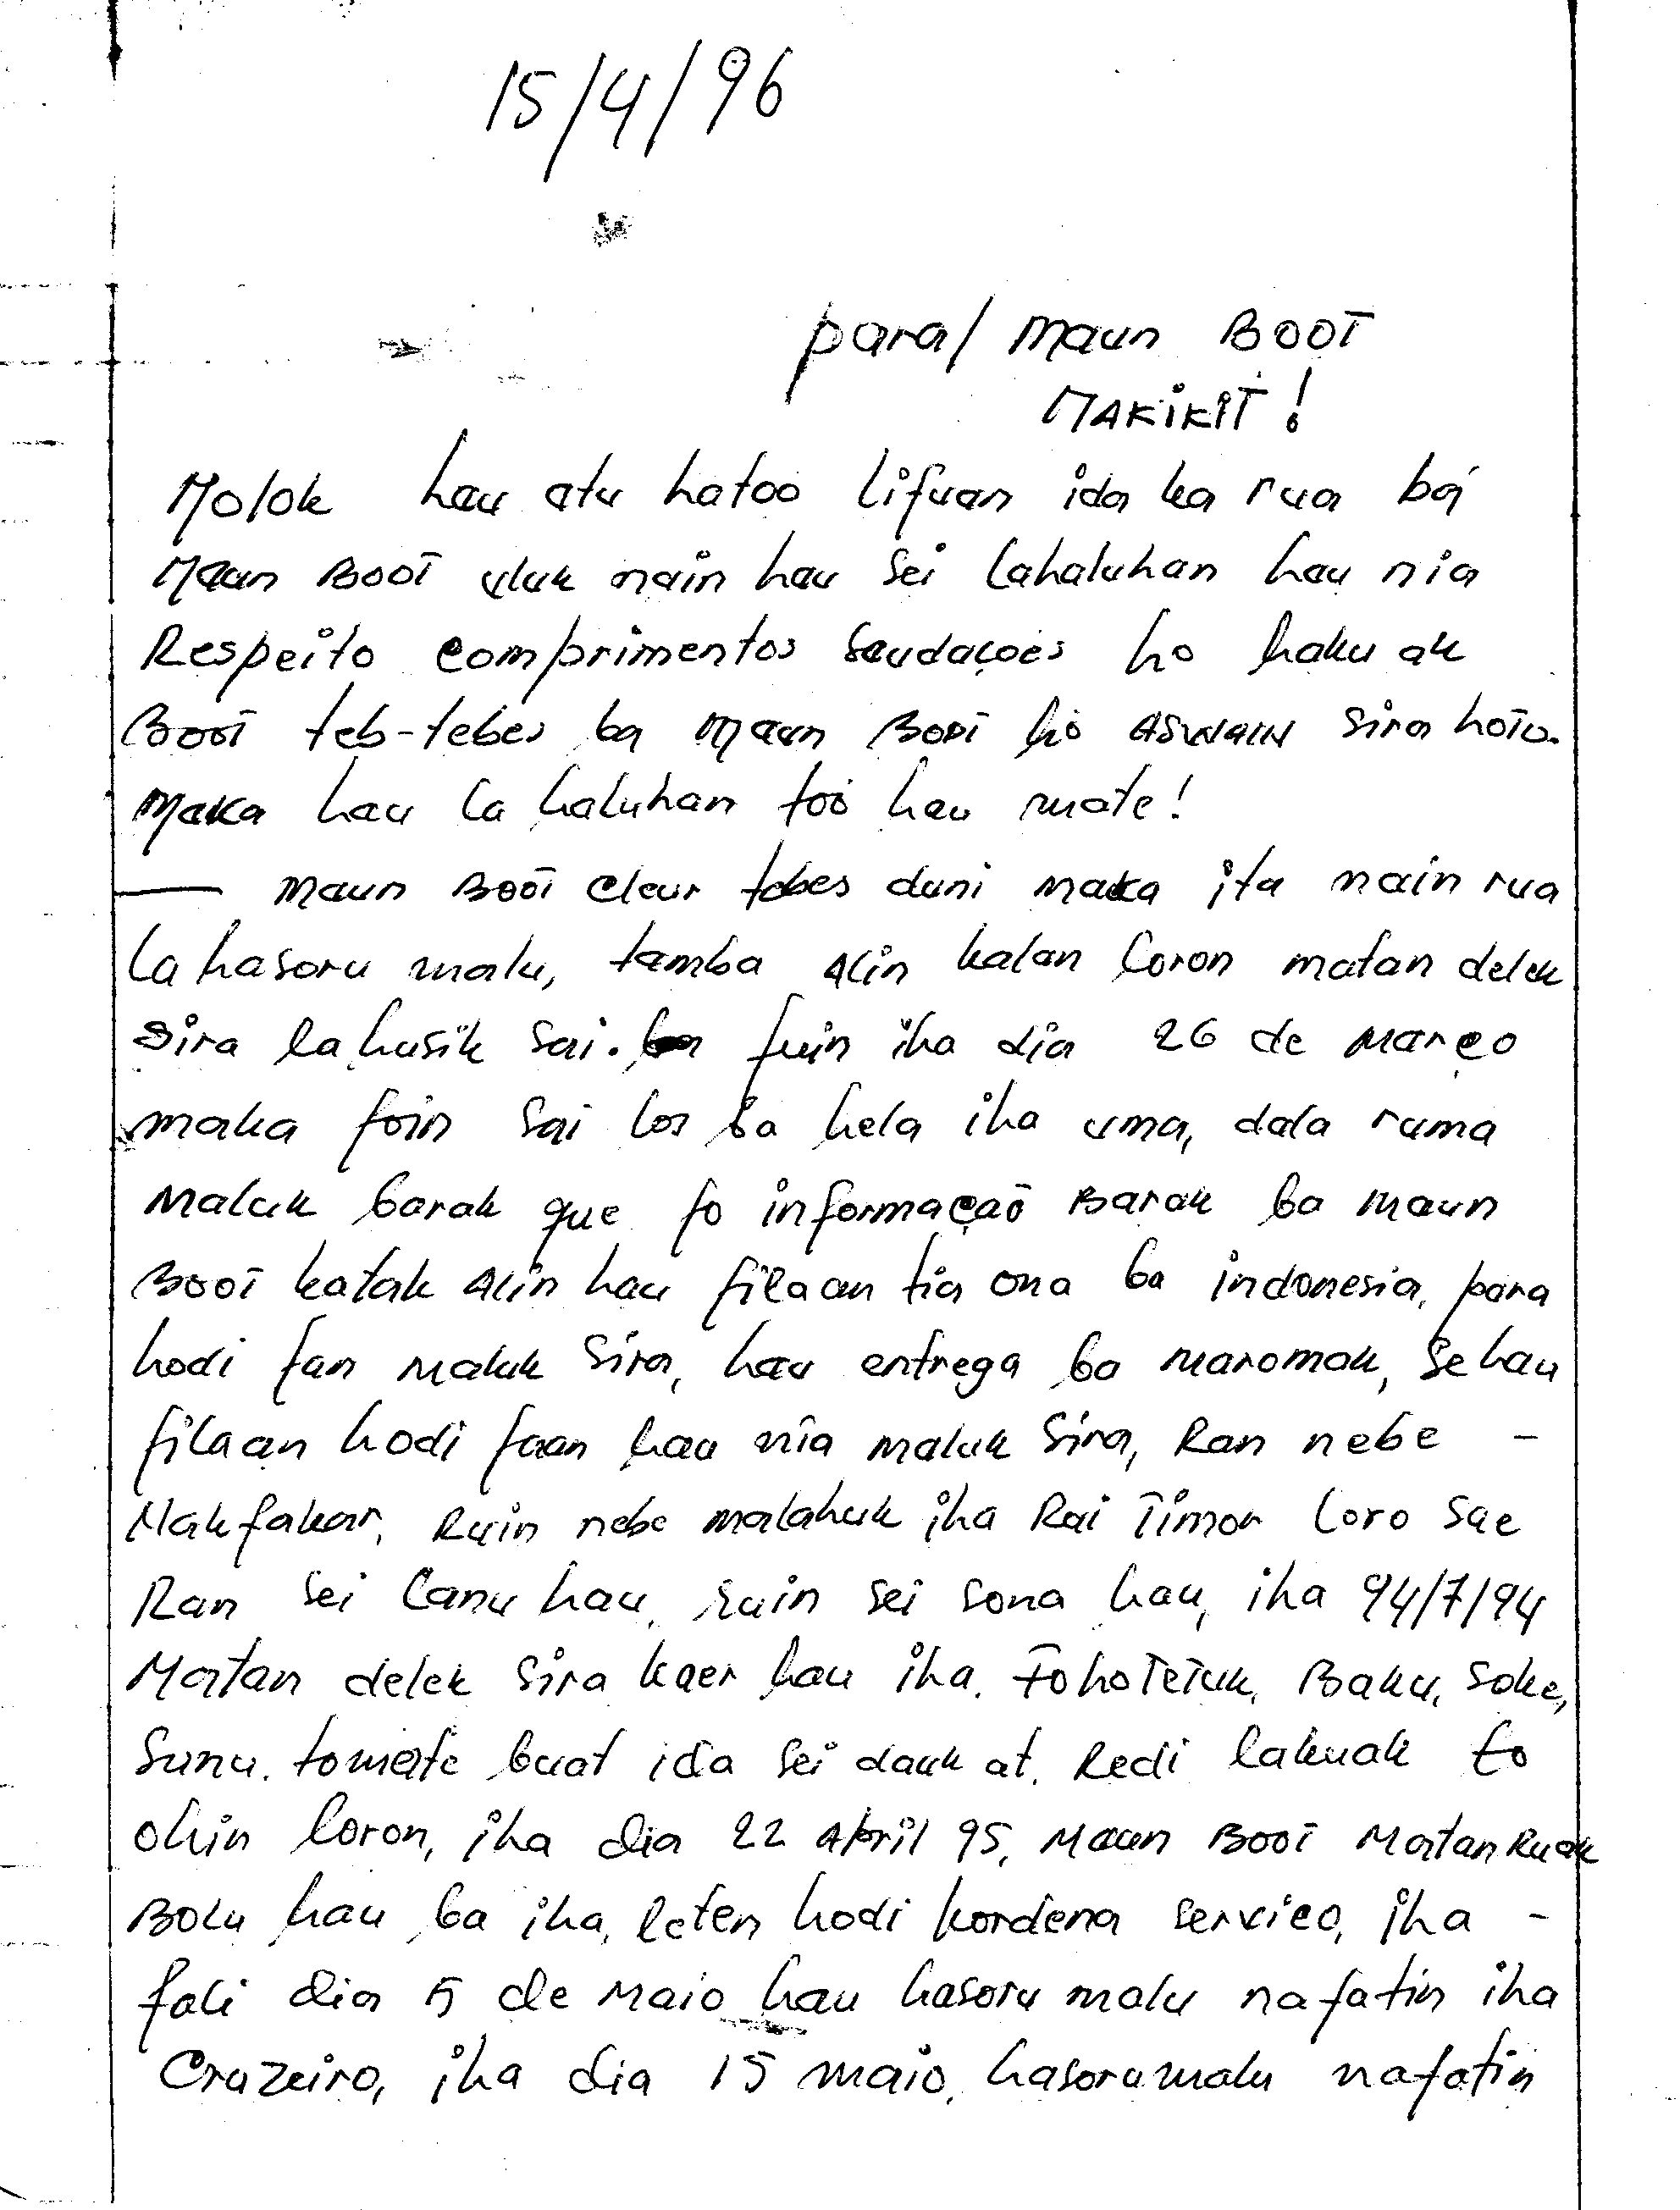 15/4/96
para/ Maun Boot
MAKIKIT!
Molok hau atu hatoo lifuan ida ka rua bá
Maun Boot uluk nain hau sei lahaluhan hau nia
Respeito comprimentos Saudaçoes ho hakuak
Boot teb-tebes ba Maun Boot ho ASWAIN sira hotu.
Maka hau la haluhan too hau mate!
— Maun Boot cleur tebes duni maka ita nain rua
la hasoru malu, tamba Alin kalan loron matan delek
sira la husik sai. fuin iha dia 26 de Março
maka foin sai los ba hela iha uma, dala ruma
Maluk barak que fo informaçaõ Barak ba Maun
Boot katak Alin hau filaan tia ona ba indonesia, para
hodi fan Maluk Sira, hau entrega ba Maromak, Se hau
filaan hodi faan hau nia maluk Sira, Ran nebe -
Nakfakar, Ruin nebe malahuk iha Rai Timor Loro Sae
Ran sei Lanu hau, ruin sei sona hau, iha 94/7/94
Matan delek Sira kaer hau iha. FohoTetuk, Baku, Soke,
Sunu. tomate buat ida sei dauk at. Redi lakuak to
ohin loron, iha dia 22 April 95, Maun Boot Matan Ruak
Bolu hau ba iha, leten hodi kordena servico, iha -
fali dia 5 de Maio hau hasoru malu nafatin iha
Cruzeiro, iha dia 15 maio, hasorumalu nafatin